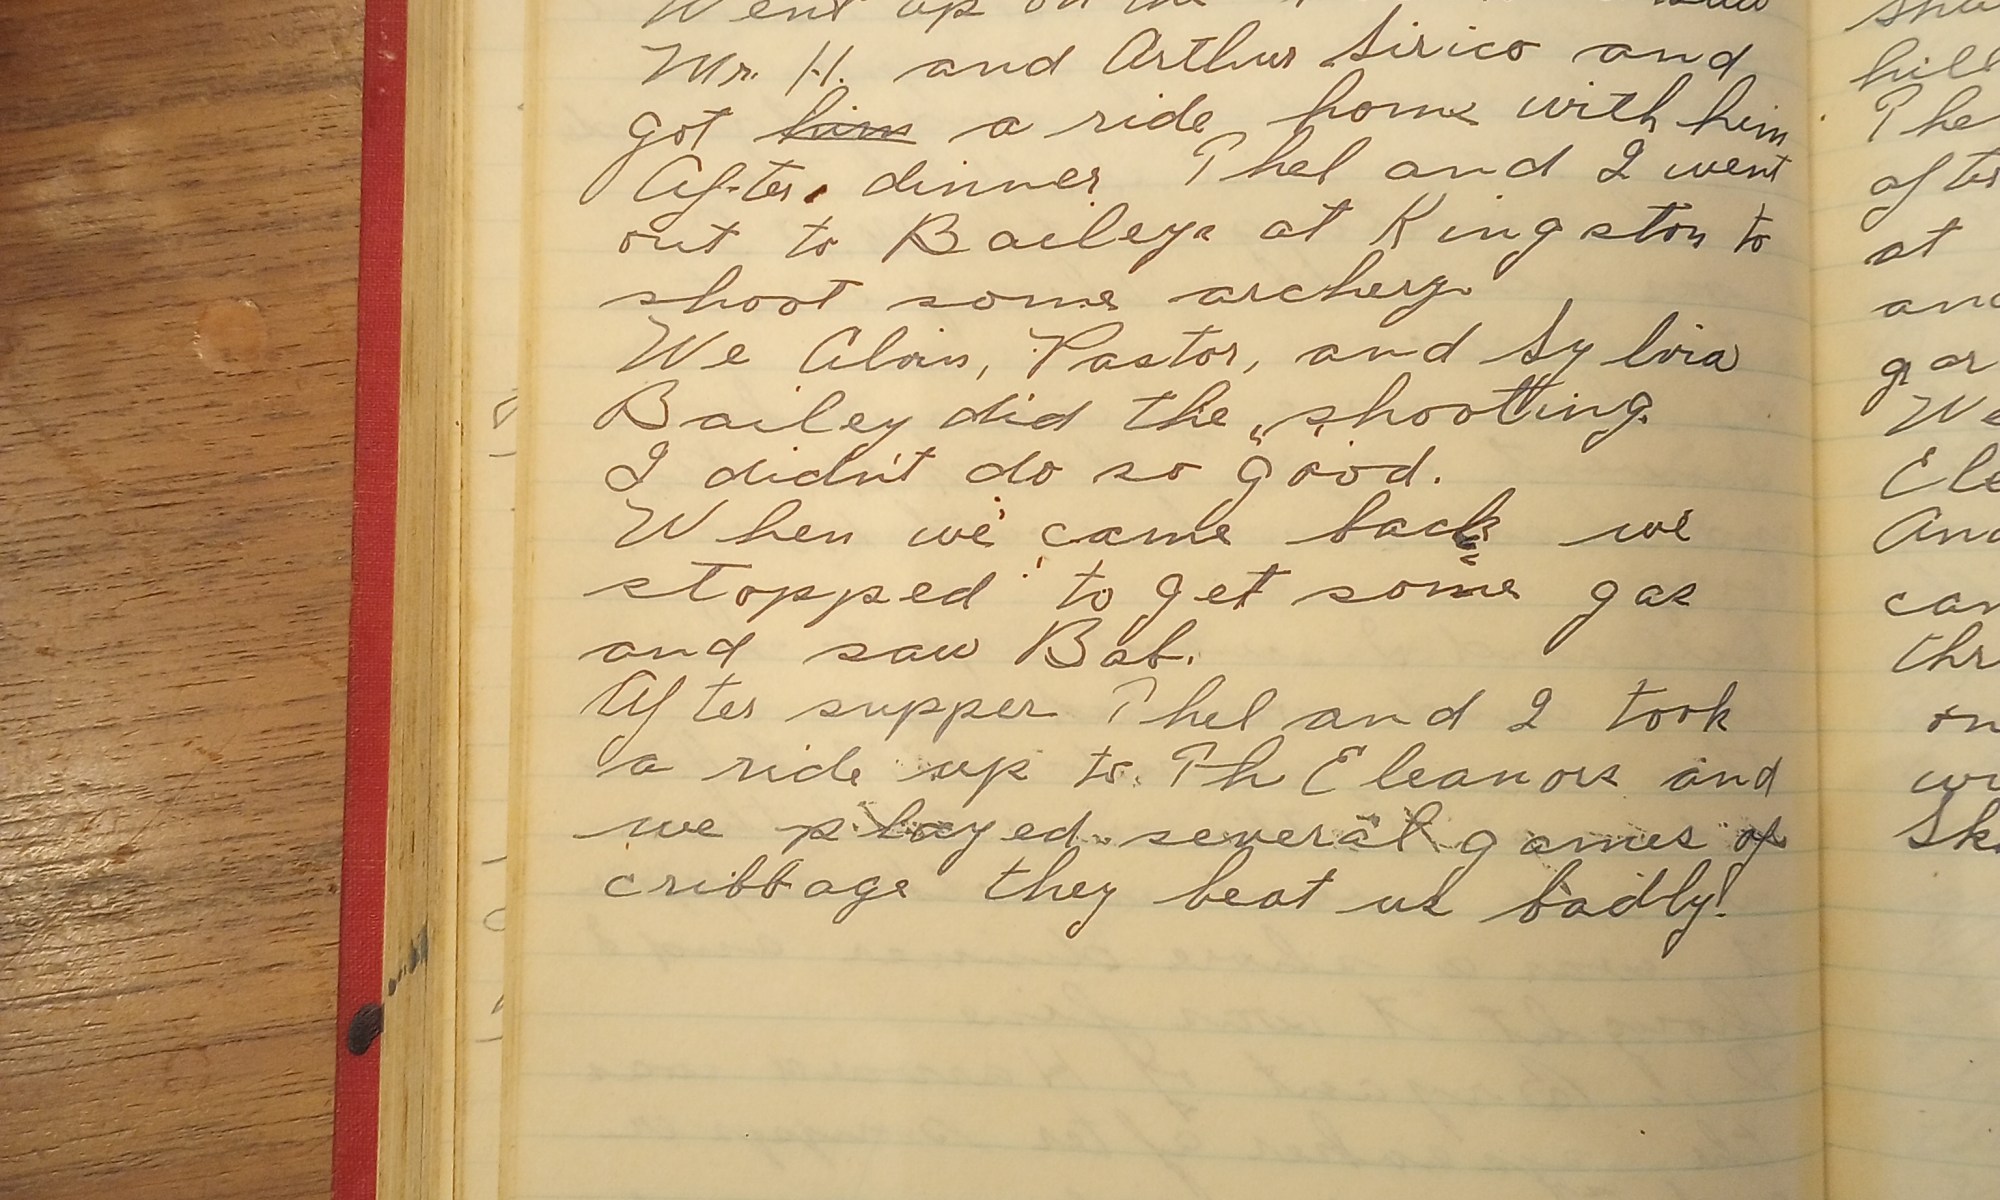 Went up on the
Mr. H. and Arthur Sirico and
got him a ride home with him
After dinner Thel and I went
out to Baileys at Kingston to
shoot some archery.
We Alvin, Pastor, and Sylvia
Bailey did the shooting.
I didn't do so good.
When we came back we
stopped to get some gas
and saw Bab.
After supper Thel and I took
a ride up to Th Eleanors and
we played several games of
cribbage they beat us badly!
hill
The
after
at
and
gar
We
Ele
And
can
thr
on
wi
Sk